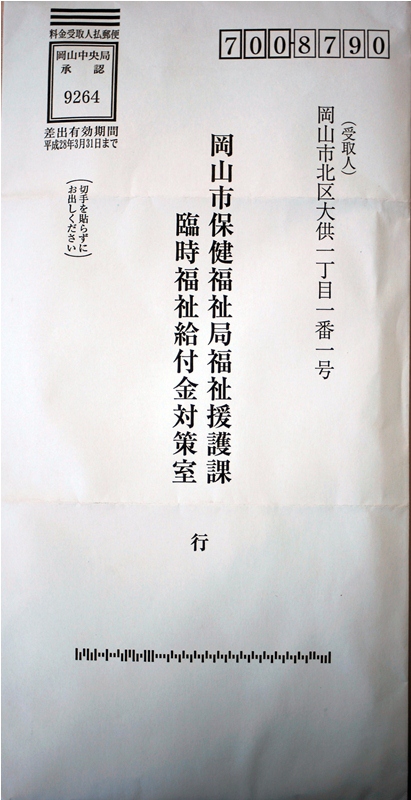 料金受取人払郵便
岡山中央局
承認
9264
差出有効期間
平成28年3月31日まで
(切手を貼らずに
お出しください)
700-8790
(受取人)
岡山市北区大供一丁目一番一号
岡山市保健福祉局福祉援護課
臨時福祉給付金対策室
行